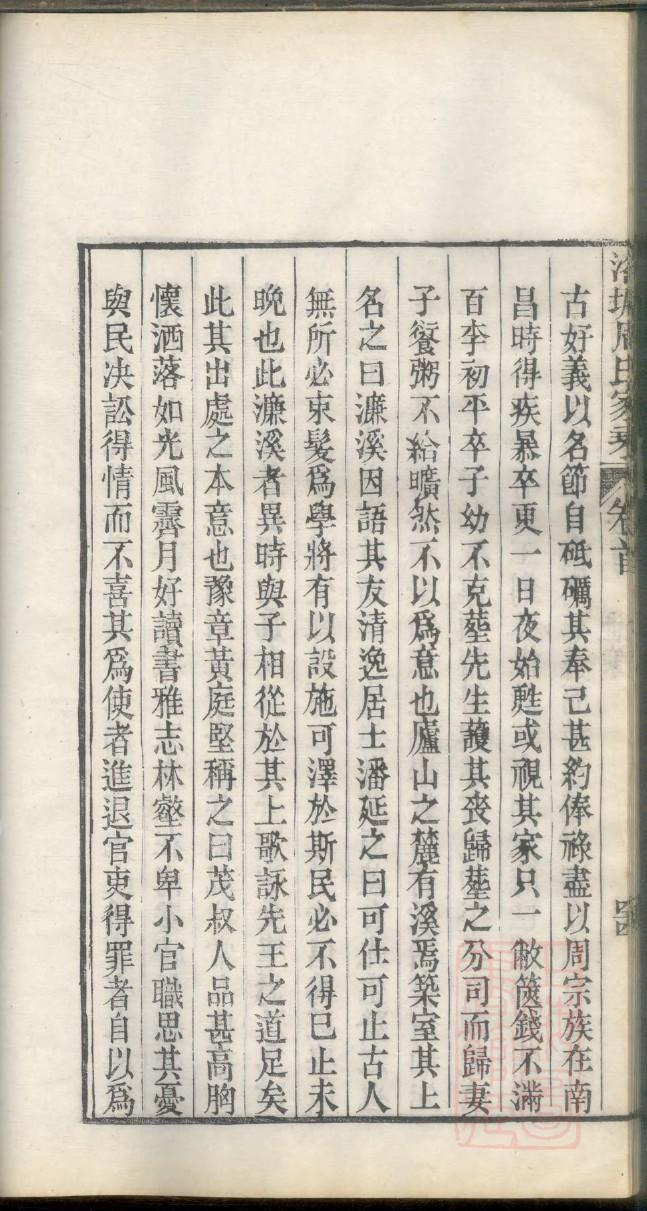 周氏家乘 卷首
古好義以名節自砥礪其奉己甚約俸祿盡以周宗族在南
昌時得疾暴卒更一日夜始甦或視其家只一敝篋錢不滿
百李初平卒子幼不克塟先生護其喪歸塟之分司而歸妻
子饘粥不給曠然不以爲意也廬山之麓有溪焉築室其上
名之曰濂溪因語其友清逸居士潘延之曰可仕可止古人
無所必束髮爲學將有以設施可澤於斯民必不得已止未
晚也此濂溪者異時與子相從於其上歌詠先王之道足矣
此其出處之本意也豫章黃庭堅稱之曰茂叔人品甚高胸
懷洒落如光風霽月好讀書雅志林壑不卑小官職思其憂
與民決訟得情而不喜其爲使者進退官吏得罪者自以爲